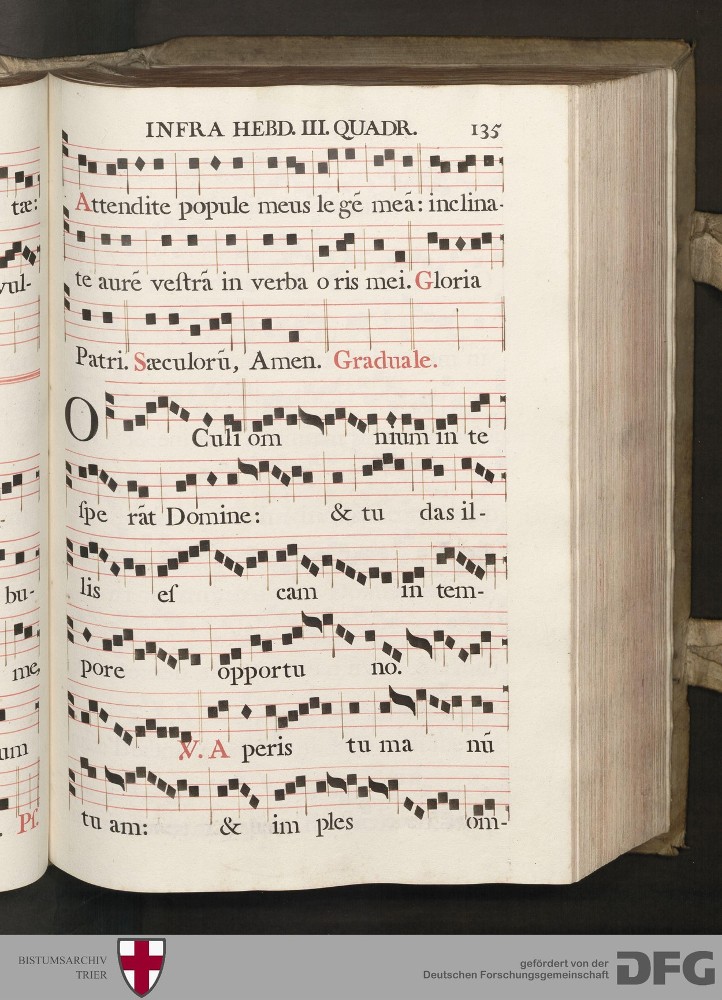 tæ:
vul-
bu-
me,
um
Ps.
INFRA HEBD. III. QUADR. 135
Attendite popule meus le gẽ meã: inclina-
te aurẽ veſtrã in verba o ris mei. Gloria
Patri. Sæculorũ, Amen. Graduale.
O Culi om nium in te
ſpe rãt Domine: & tu das il-
lis eſ cam in tem-
pore opportu no.
V. A peris tu ma nũ
tu am: & im ples om-
BISTUMSARCHIV
TRIER
gefördert von der
Deutschen Forschungsgemeinschaft
DFG